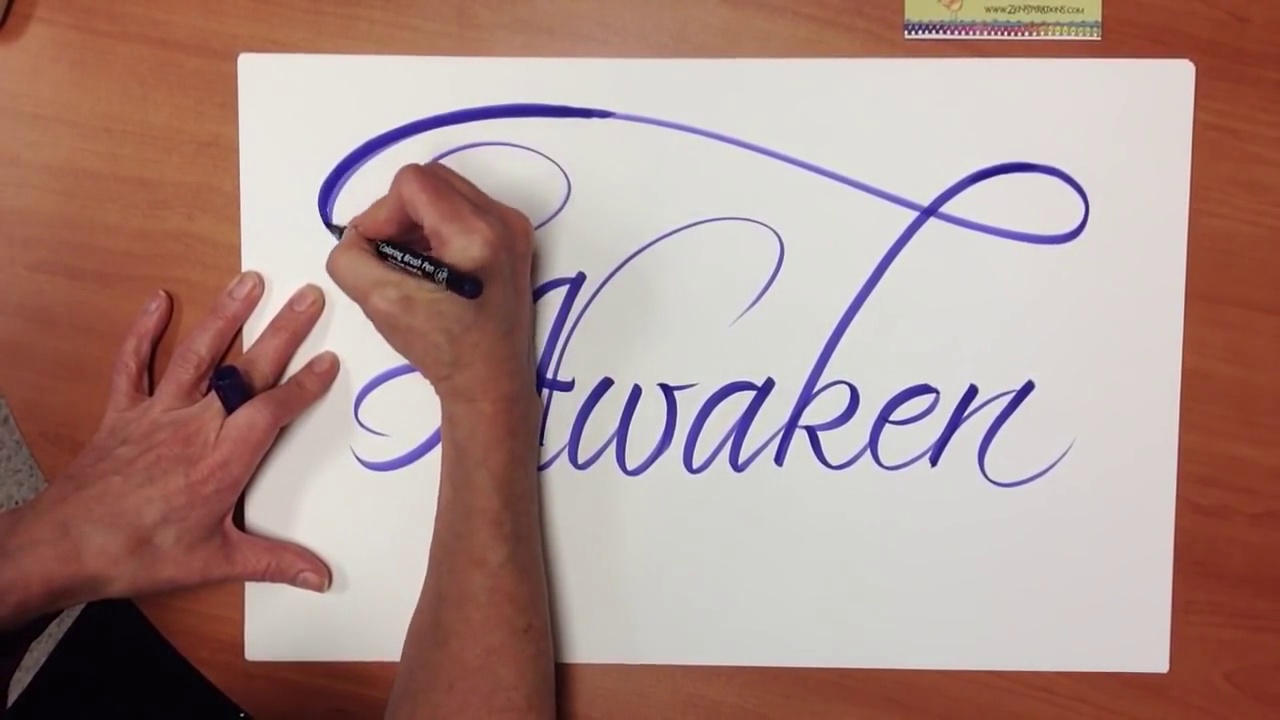 www.Zenspirations.com
Coloring Brush Pen AP
Awaken